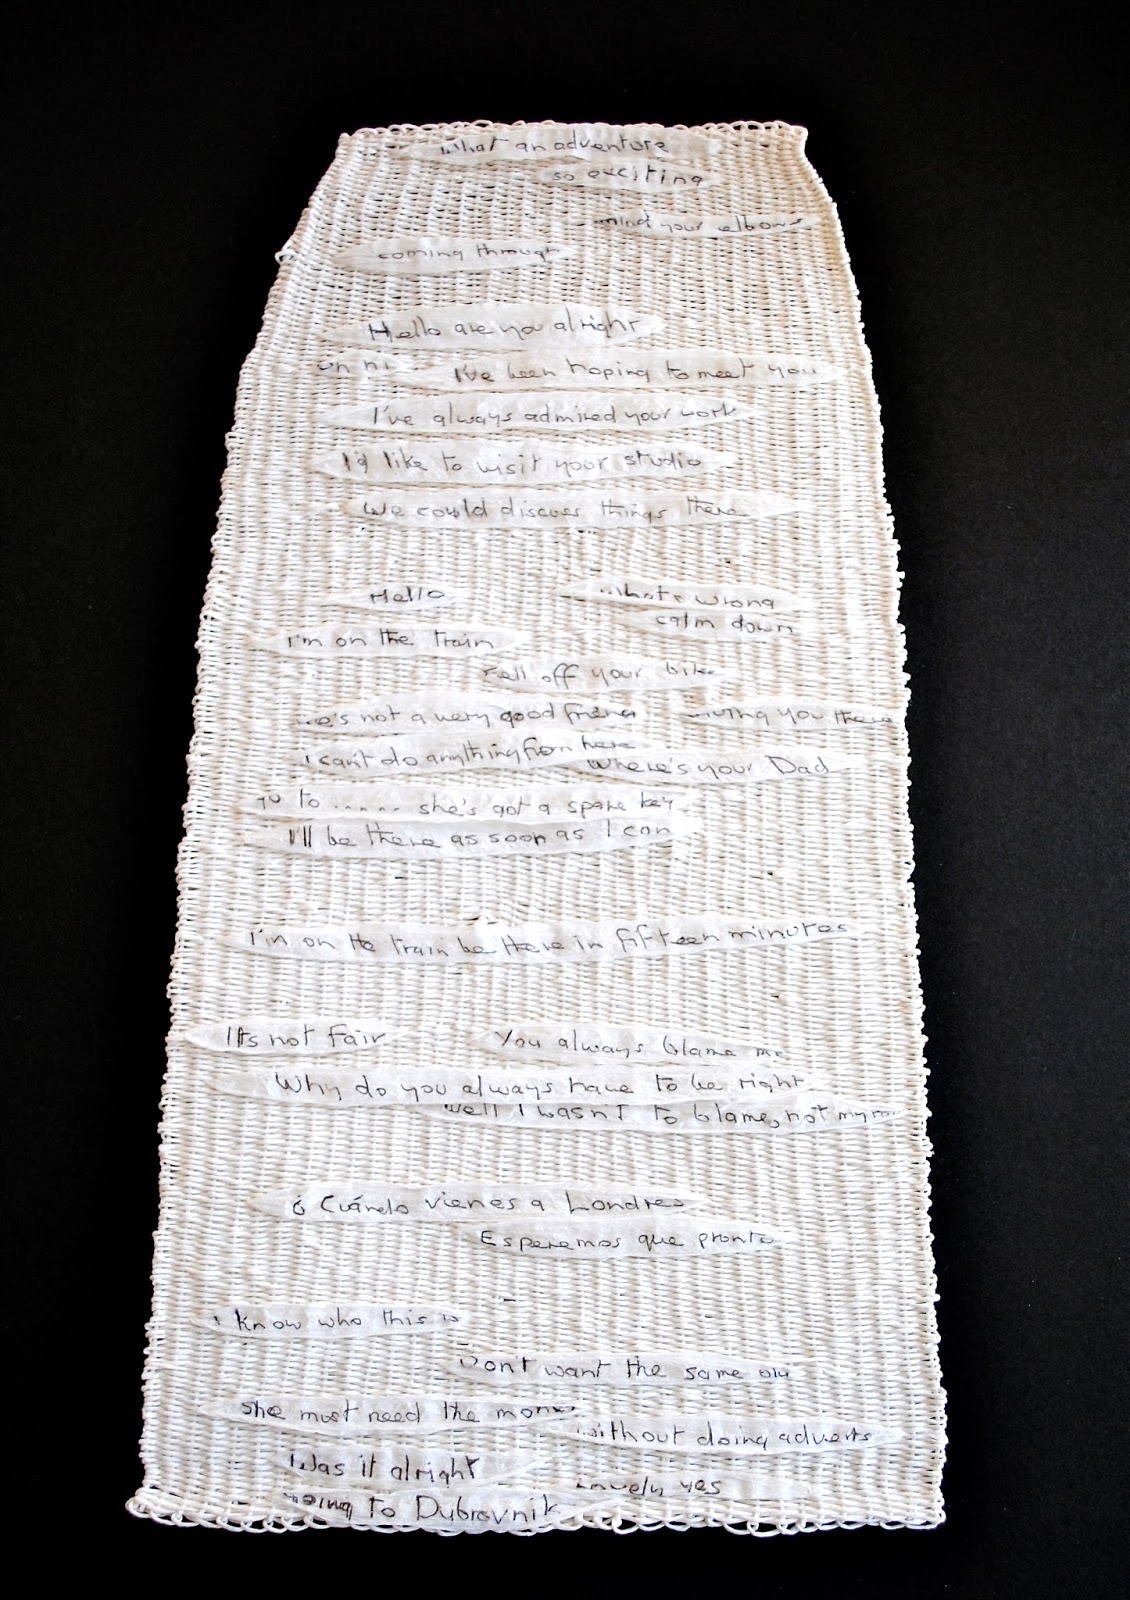 What an adventure
so exciting
mind your elbows
coming through
Hello are you alright
I've been hoping to meet you
I've always admired your work
I'd like to visit your studio
We could discuss things there
Hello whats wrong
calm down
I'm on the train
Fell off your bike
not a very good friend you there
I can't do anything from here
Where's your Dad
to ..... she's got a spare key
I'll be there as soon as I can
I'm on the train be there in fifteen minutes
Its not fair You always blame me
Why do you always have to be right
Well I wasn't to blame, not my
¿ Cuándo vienes a Londres
Esperemos que pronto
I know who this is
Don't want the same old
She must need the money
without doing adverts
Was it alright
Lovely yes
going to Dubrovnik